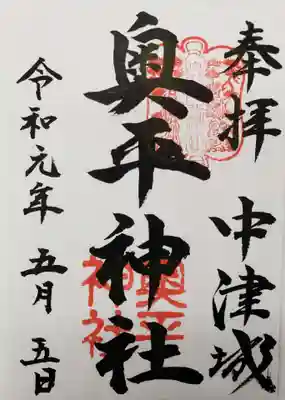 奉拝
中津城
奥平神社
奥平
神社
令和元年 五月 五日